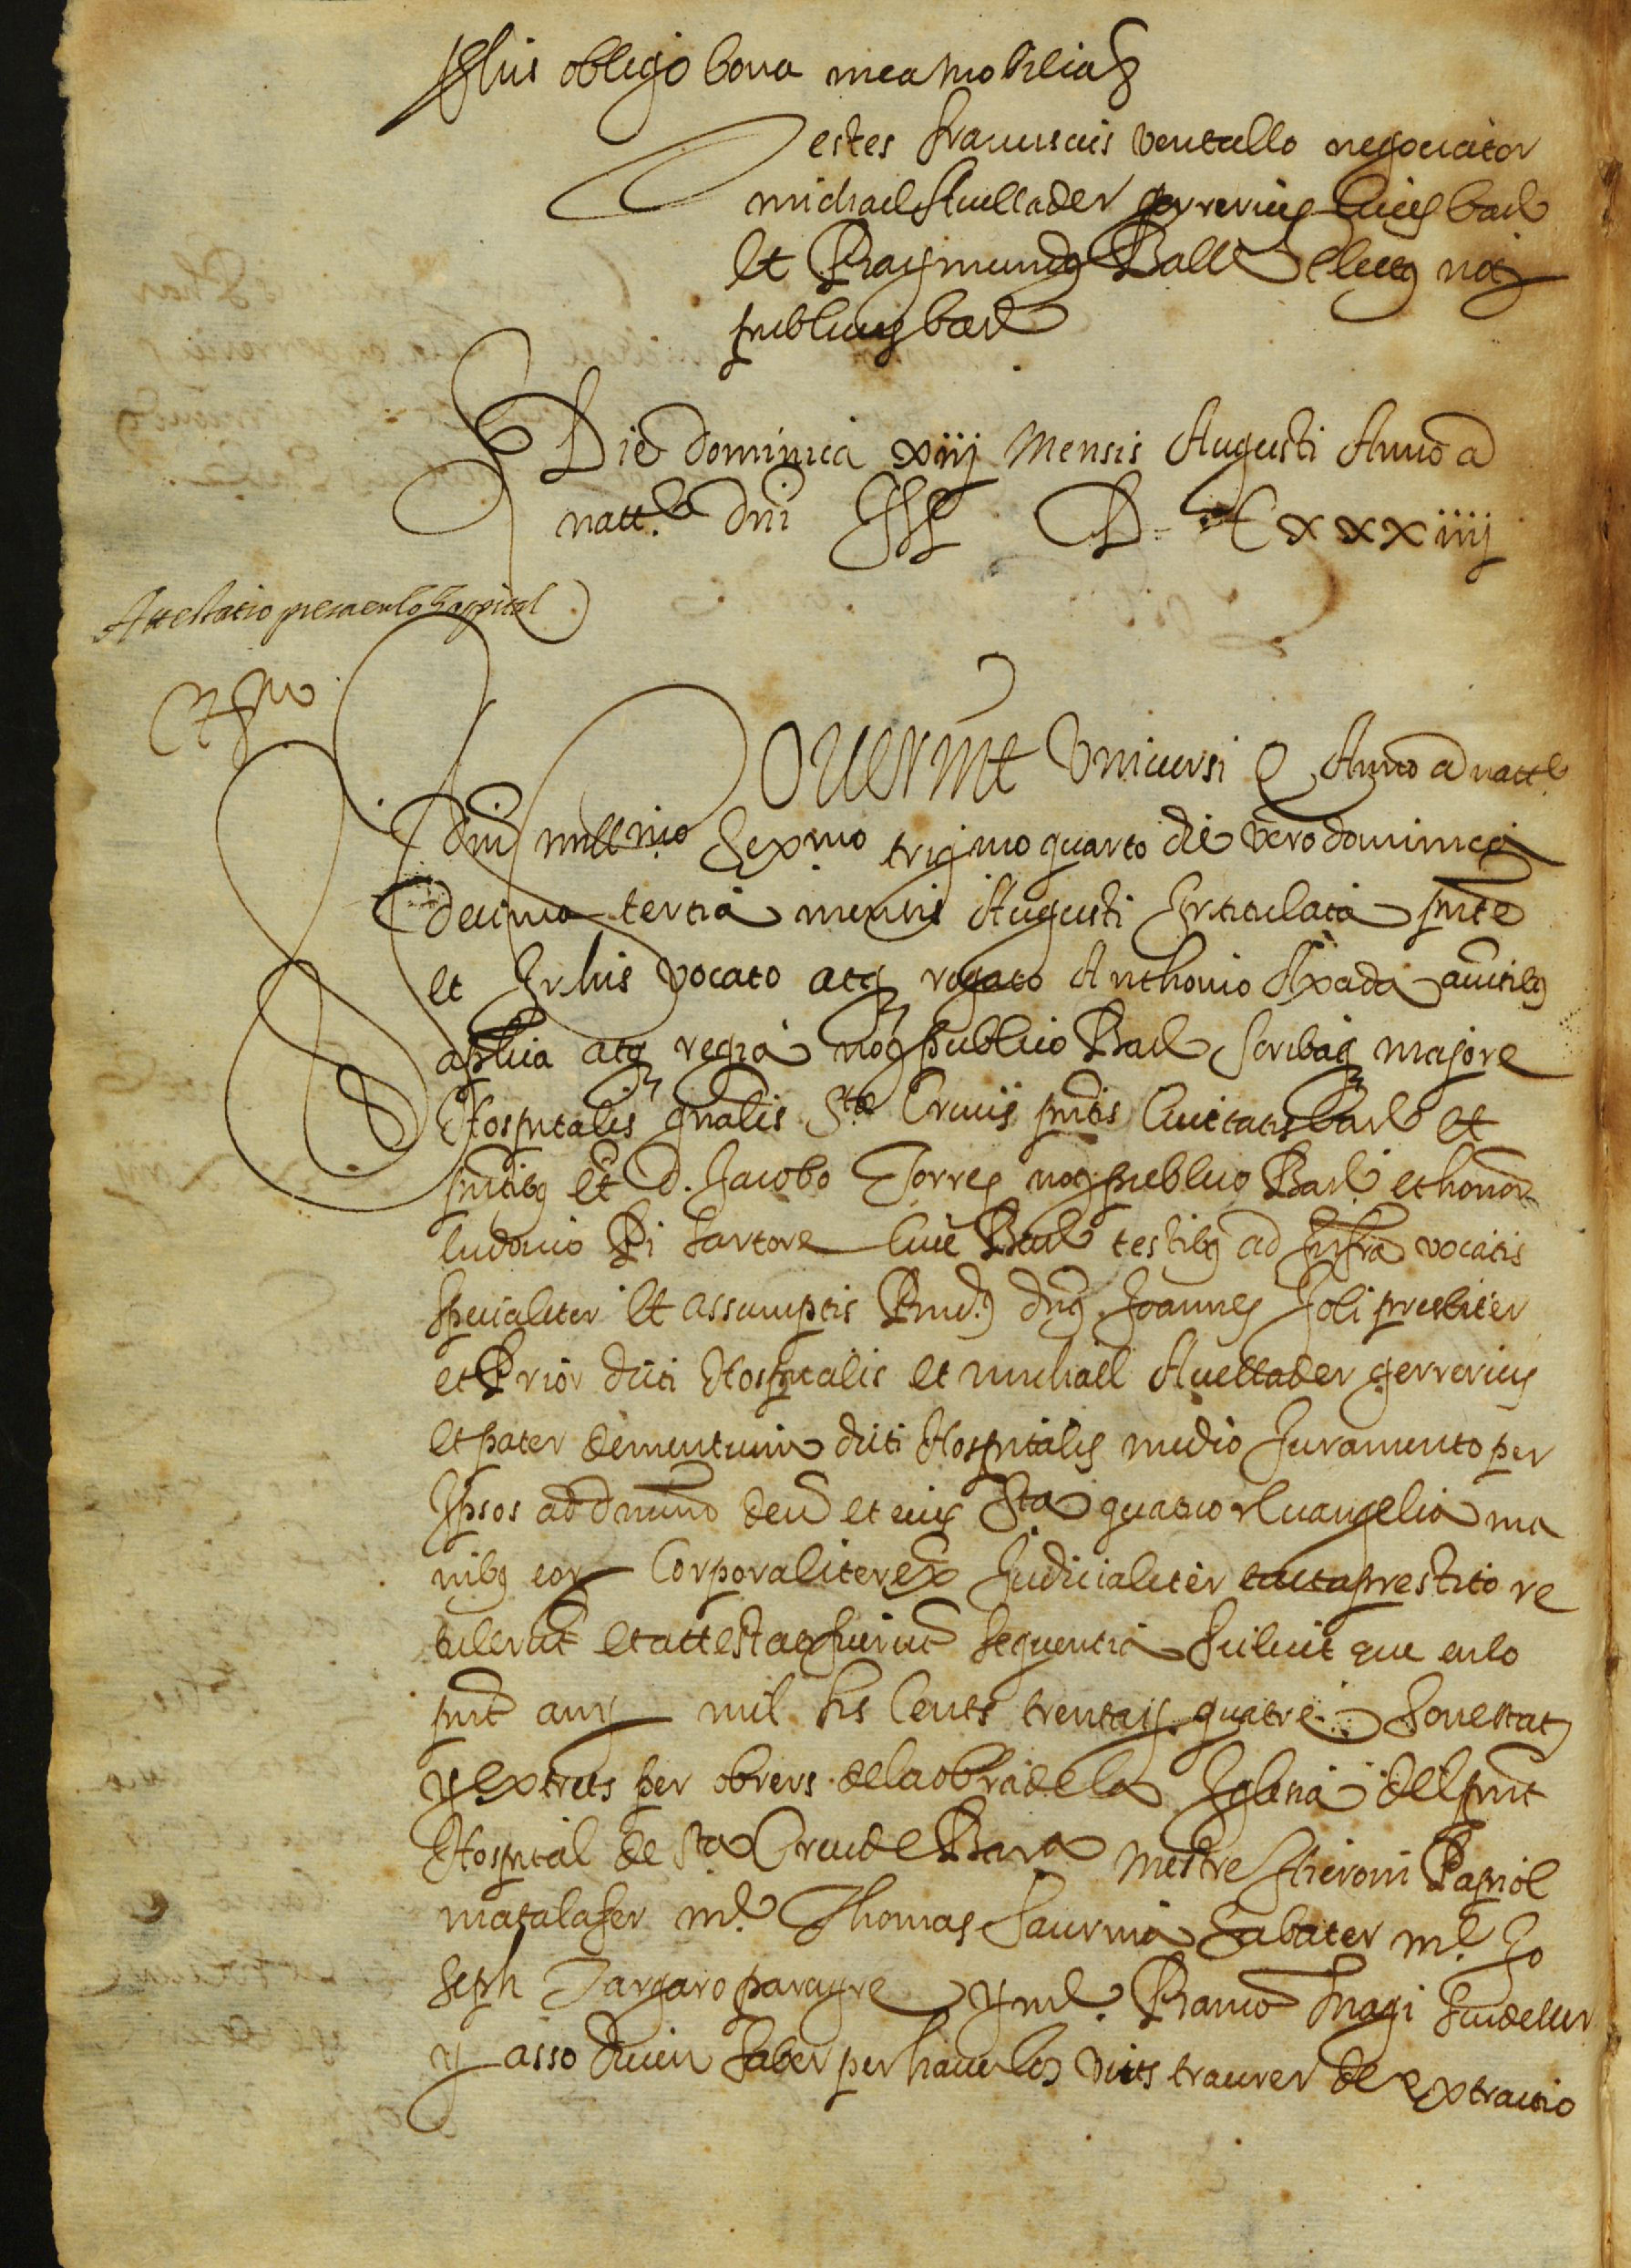 illis obligo bona mea mobilia &
Testes Franciscus Ventallo negociator
michael Avellader gerrerius cives bar
Et Raymundus Batlle electus not
publicus bar
Die dominica xiij Mensis Augusti Anno a
natt.e dni M DCxxxiiij
Attestatio presa en lo Hospital
NOverint Universi q Anno a natt.e
dni millmo Sexmo trigmo quarto die vero dominica
decima tertia mensis Augusti Intitulata pnte
et Infrius vocato atq rogato Anthonio Axada auctibus
aplica atq regia not publico Bar Scribaq majore
Hospitalis gnalis Sta Crucis pntis Civitatis Bar et
pntibus Et d. Jacobo Torres not publico Bar et honor
ludovico Pi Sartore Cive Bar testibus ad Infra vocatis
specialiter Et assumptis Rnd.s dns Joannes Joli presbiter
et Prior dicti Hospitalis et michael Avellader gerrerius
et pater dementium dicti Hospitalis medio Juramento per
Ipsos ad dnum deu et eius Sta quatuor Evangelia ma
nibus eor Corporaliter & Judicialiter tacta prestito re
tulerut et attestati fuerut sequentia Scilicet que en lo
pnt any mil sis Cents trenta y quatre Son estats
y extrets per obrers de la obra de la Iglesia del pnt
Hospital de Sta Creu de Bara mestre Hieroni Papiol
matalafer m.e Thomas Saurina Sabater m.e Jo
seph Targaro parayre y m.e Ramo Magi Candeler
y asso dien saber per haverlos vists traurer de extractio